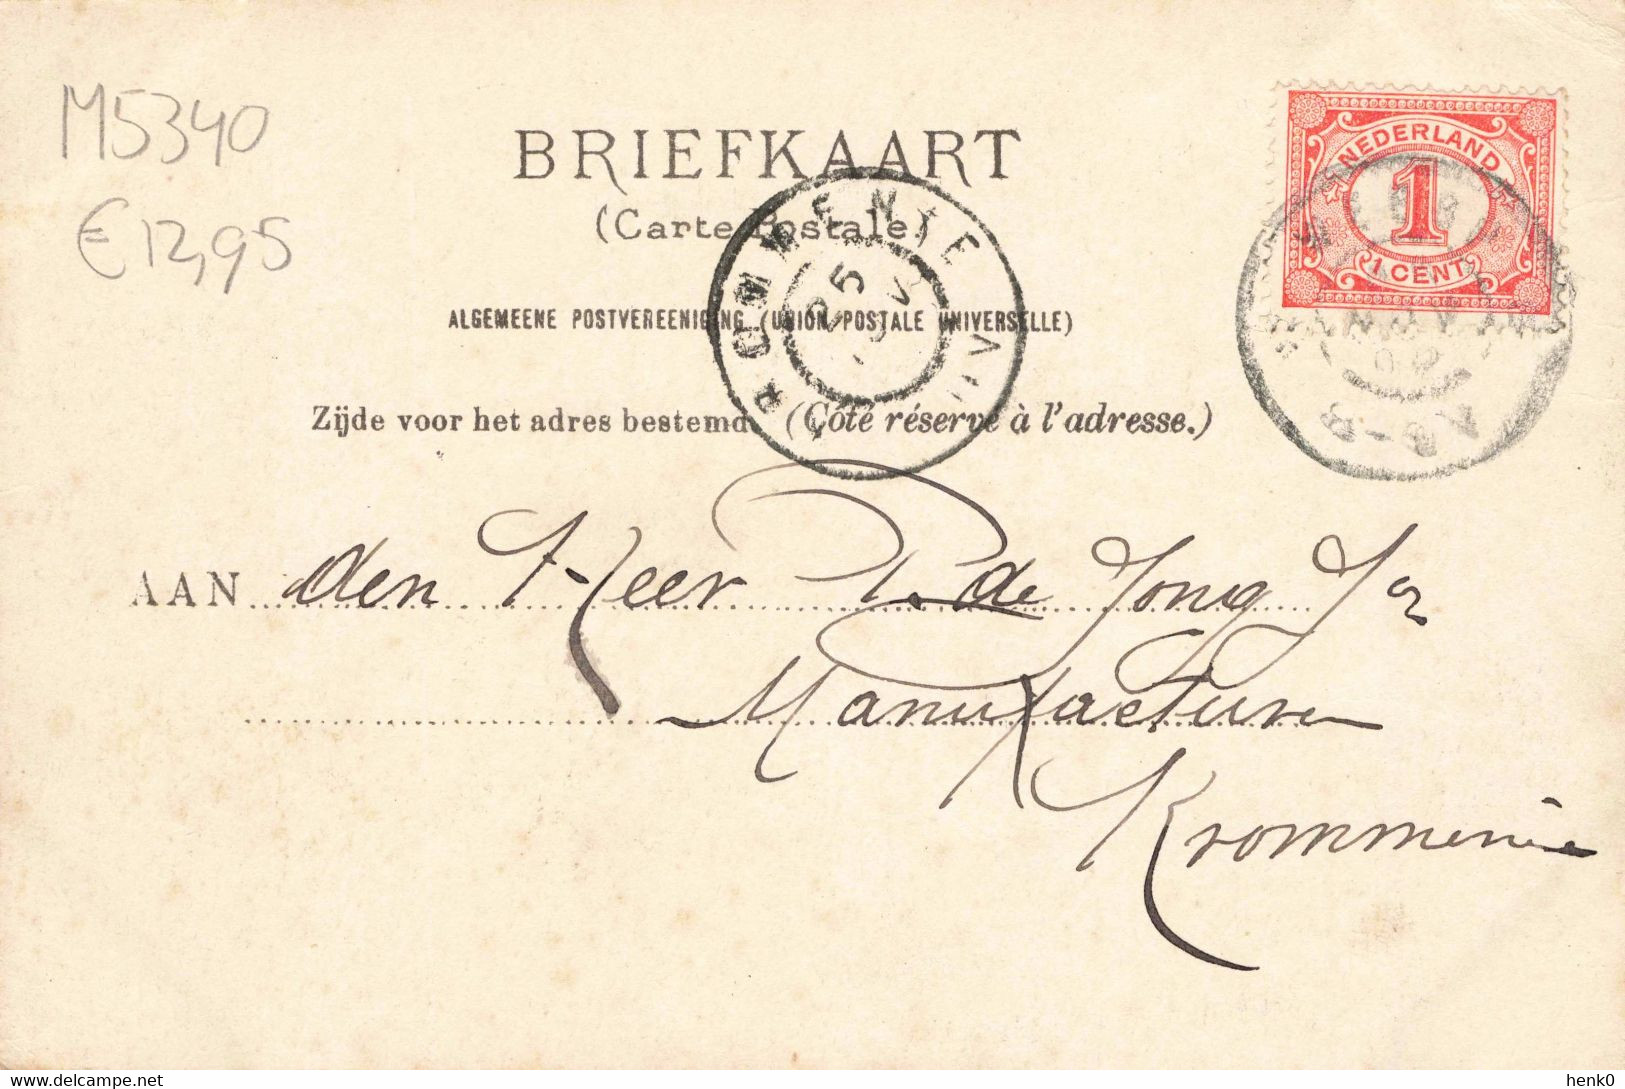 M5340
€12,95
BRIEFKAART
(Carte Postale)
ALGEMEENE POSTVEREENIGING (UNION POSTALE UNIVERSELLE)
Zijde voor het adres bestemd. (Côté réservé à l'adresse.)
NEDERLAND
1
1 CENT
25
AAN den Heer P. de Jong Jr
Manufacturen
Krommenie
delcampe.net
henk0